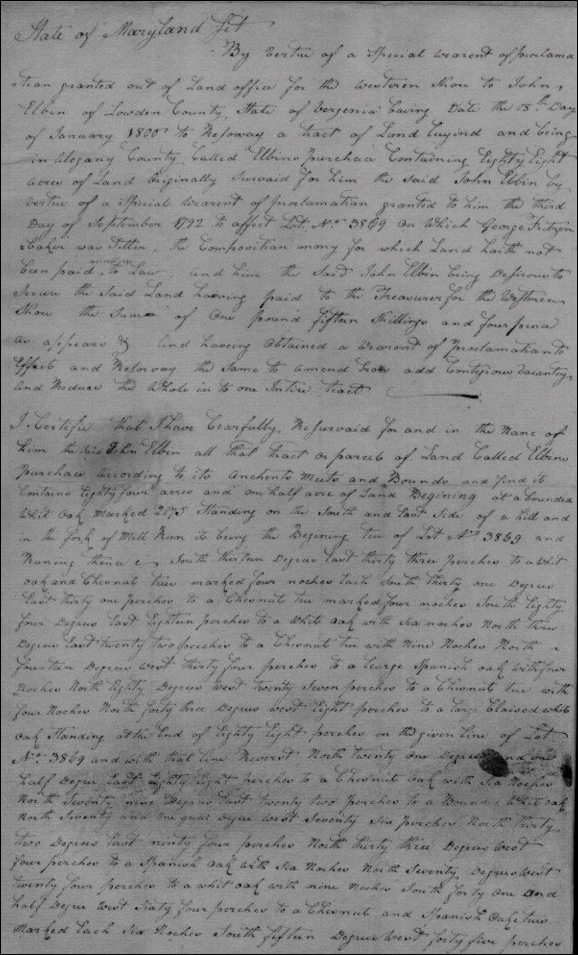 State of Maryland Sct
By Vertue of a Special Warent of proclama
tion granted out of Land office for the Westeren Shore to John
Elbin of Lowden County State of Vergenia baring Date the 18th Day
of January 1800 to Resoway a tract of Land Layind and being
in Alogany County Called Elbins purchace Containing Eighty Eight
acres of Land Originally Survaid for him the said John Elbin by
Vertue of a Special Warent of proclamatian granted to him the third
Day of September 1792 to affect Lot No 3869 on Which George Fitzen
Baker was Settled, the Composition mony for which Land haith not
been paid to Law, and him the Said John Elbin being Desirous to
Secure the Said Land having paid to the Treasurer for the Westeren
Shore the Sume of One pound fifteen Shillings and four pence
as appears & and having Obtained a Warent of Proclamation to
Effect and Resoway the Same to amend add Contigious Vacantcy
and Reduce the Whole in to one Intire tract
I Certifie that I have Cearfully Resurvaid for and in the Name of
him the said John Elbin all that tract or parcels of Land Called Elbins
purchace according to its Anchents Meets and Bounds and find it
Contains Eighty four acres and one half acre of Land Begining at a bounded
Whit Oak marked 2175 Standing on the South and East Side of a hill and
in the fork of Mill Run its being the Begining tree of Lot No 3869 and
Runing thence South thirteen Degrees East thirty three perches to a Whit
oak and Chesnut trees marked four noches Each South thirty one Degrees
East thirty one perches to a Chesnut tree marked four noches South Eighty
four Degrees East Eighteen perches to a White Oak with Six noches North three
Degrees East twenty two perches to a Chesnut tree with Nine Noches North
fourteen Degrees West thirty four perches to a Learge Spanish oak with four
Noches North Eighty Degrees West twenty Seven perches to a Chesnut tree with
four Noches North forty three Degrees West Eight perches to a Large Blaised White
Oak Standing at the End of Eighty Eight perches on the given line of Lot
No 3869 and with that line Reverst North twenty one Degrees and one
half Degree East Eighty Eight perches to a Chesnut Oak with Six Noches
North Seventy nine Degrees East twenty two perches to a Bound Whit oak
North Seventy and One quar Degree West Seventy Six perches North thirty
two Degrees East ninty four perches North thirty three Degrees West
four perches to a Spanish Oak with Six Noches North Seventy Degrees West
twenty four perches to a whit oak with nine Noches South forty One and
half Degre West Sixty four perches to a Chesnut and Spanish Oak trees
Marked Each Six Noches South fifteen Degrees West forty five perches